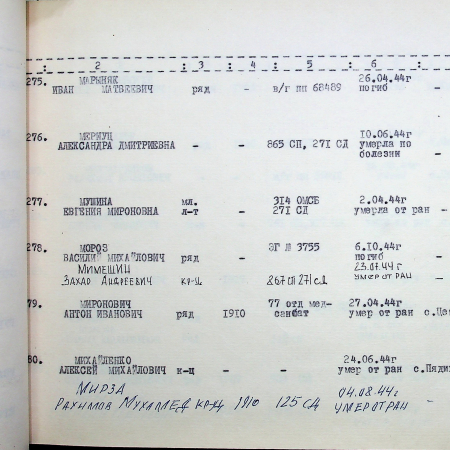 2 : 3 : 4 : 5 : 6 :
275. МАРЫНЯК 26.04.44г
ИВАН МАТВЕЕВИЧ ряд - в/г пп 68489 погиб -
276. МЕРКУЦ 10.06.44г
АЛЕКСАНДРА ДМИТРИЕВНА - - 865 СП, 271 СД умерла по -
болезни
277. МУШИНА мл. 314 ОМСБ 2.04.44г
ЕВГЕНИЯ МИРОНОВНА л-т - 271 СД умерла от ран -
278. МОРОЗ ЭГ № 3755 6.10.44г
ВАСИЛИЙ МИХАЙЛОВИЧ ряд - погиб -
МИМЕШИН 23.07.44г
ЗАХАО АНДРЕЕВИЧ КР-Ц 867 СП 271 СД УМЕР ОТ РАН -
79. МИРОНОВИЧ 77 отд мед- 27.04.44г
АНТОН ИВАНОВИЧ ряд 1910 санбат умер от ран
80. МИХАЙЛЕНКО 24.06.44г
АЛЕКСЕЙ МИХАЙЛОВИЧ к-ц - - умер от ран
МИРЗА 04.08.44г
РАХИМОВ МУХАМЕД КР-Ц 1910 125 СД УМЕР ОТ РАН -